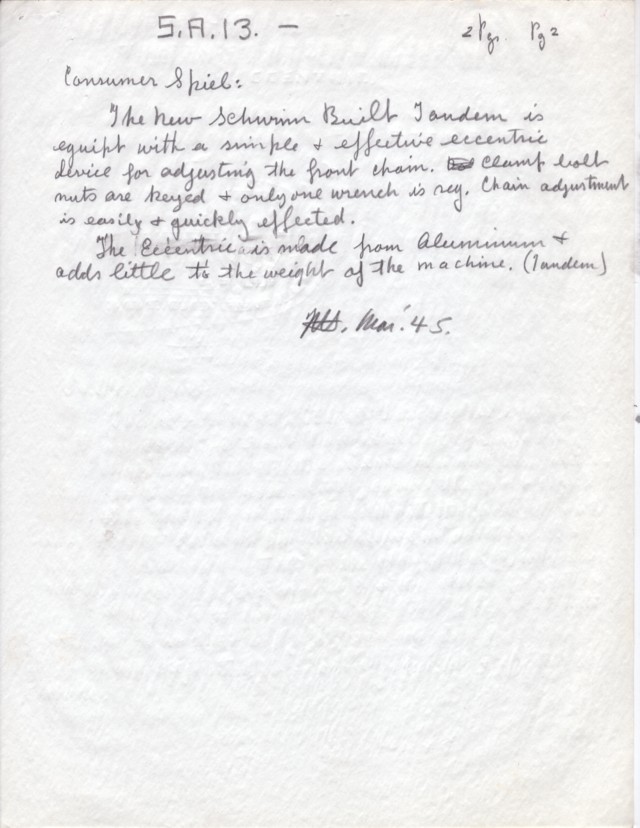 S.A.13. —
2 Pgs. Pg 2
Consumer Spiel:
The new Schwinn Built Tandem is
equipt with a simple & effective eccentric
device for adjusting the front chain. Clamp bolt
nuts are keyed & only one wrench is req. Chain adjustment
is easily & quickly effected.
The Eccentric is made from Aluminum &
adds little to the weight of the machine. (Tandem)
Mar. '45.